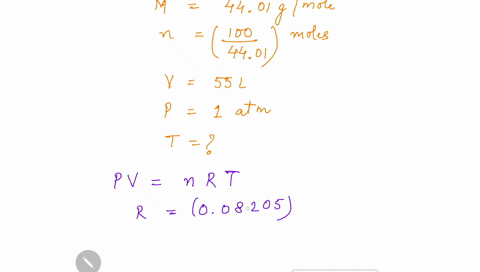 M = 44.01 g/mole
n = (100/44.01) moles
V = 55 L
P = 1 atm
T = ?
PV = nRT
R = (0.08205)